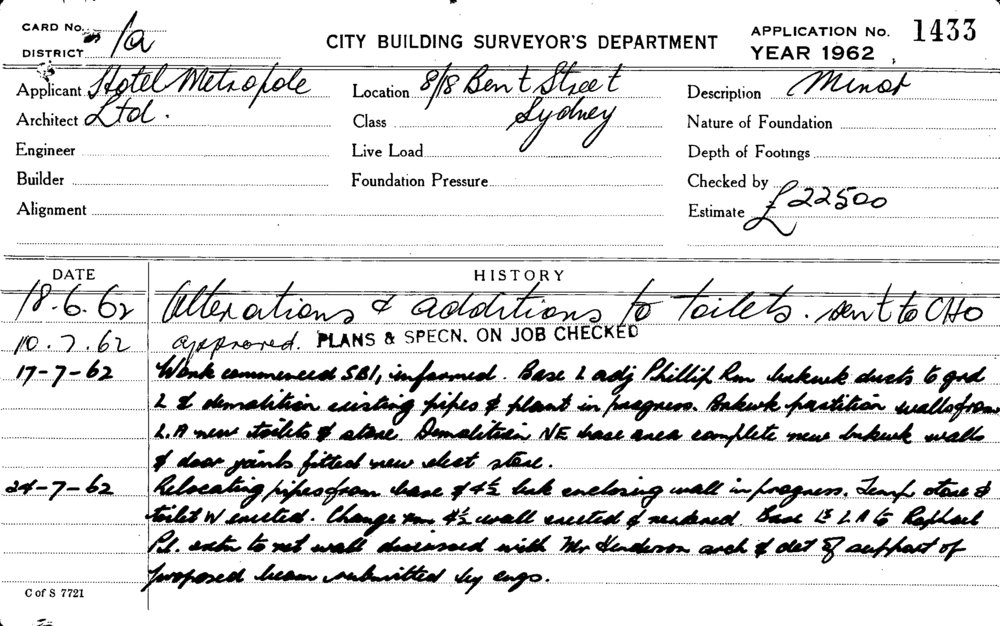 CARD No.
1a
DISTRICT
CITY BUILDING SURVEYOR'S DEPARTMENT
APPLICATION No. 1433
YEAR 1962
Applicant Hotel Metropole
Location 8/18 Bent Street
Description Minor
Architect Ltd.
Class Sydney
Nature of Foundation
Engineer
Live Load
Depth of Footings
Builder
Foundation Pressure
Checked by
Alignment
Estimate £22500
DATE HISTORY
18.6.62 Alterations & additions to toilets. sent to CHO
10.7.62 approved. PLANS & SPECN. ON JOB CHECKED
17-7-62 Work commenced SBI, informed. Base L adj Phillip Rm bwkwk ducts to grd
L & demolition existing pipes & plant in progress. Bwkwk partition walls from
L.A new toilets & store. Demolition NE base area complete new bwkwk walls
& door jambs fitted new elect store.
24-7-62 Relocating pipes from base & 4½ bwk enclosing wall in progress. Temp store &
toilet W erected. Change rm 4½ wall erected & rendered. Base L A to Raphael
Pl. extn to ret wall discussed with Mr Henderson arch & det of support of
proposed beam submitted by engs.
C of S 7721